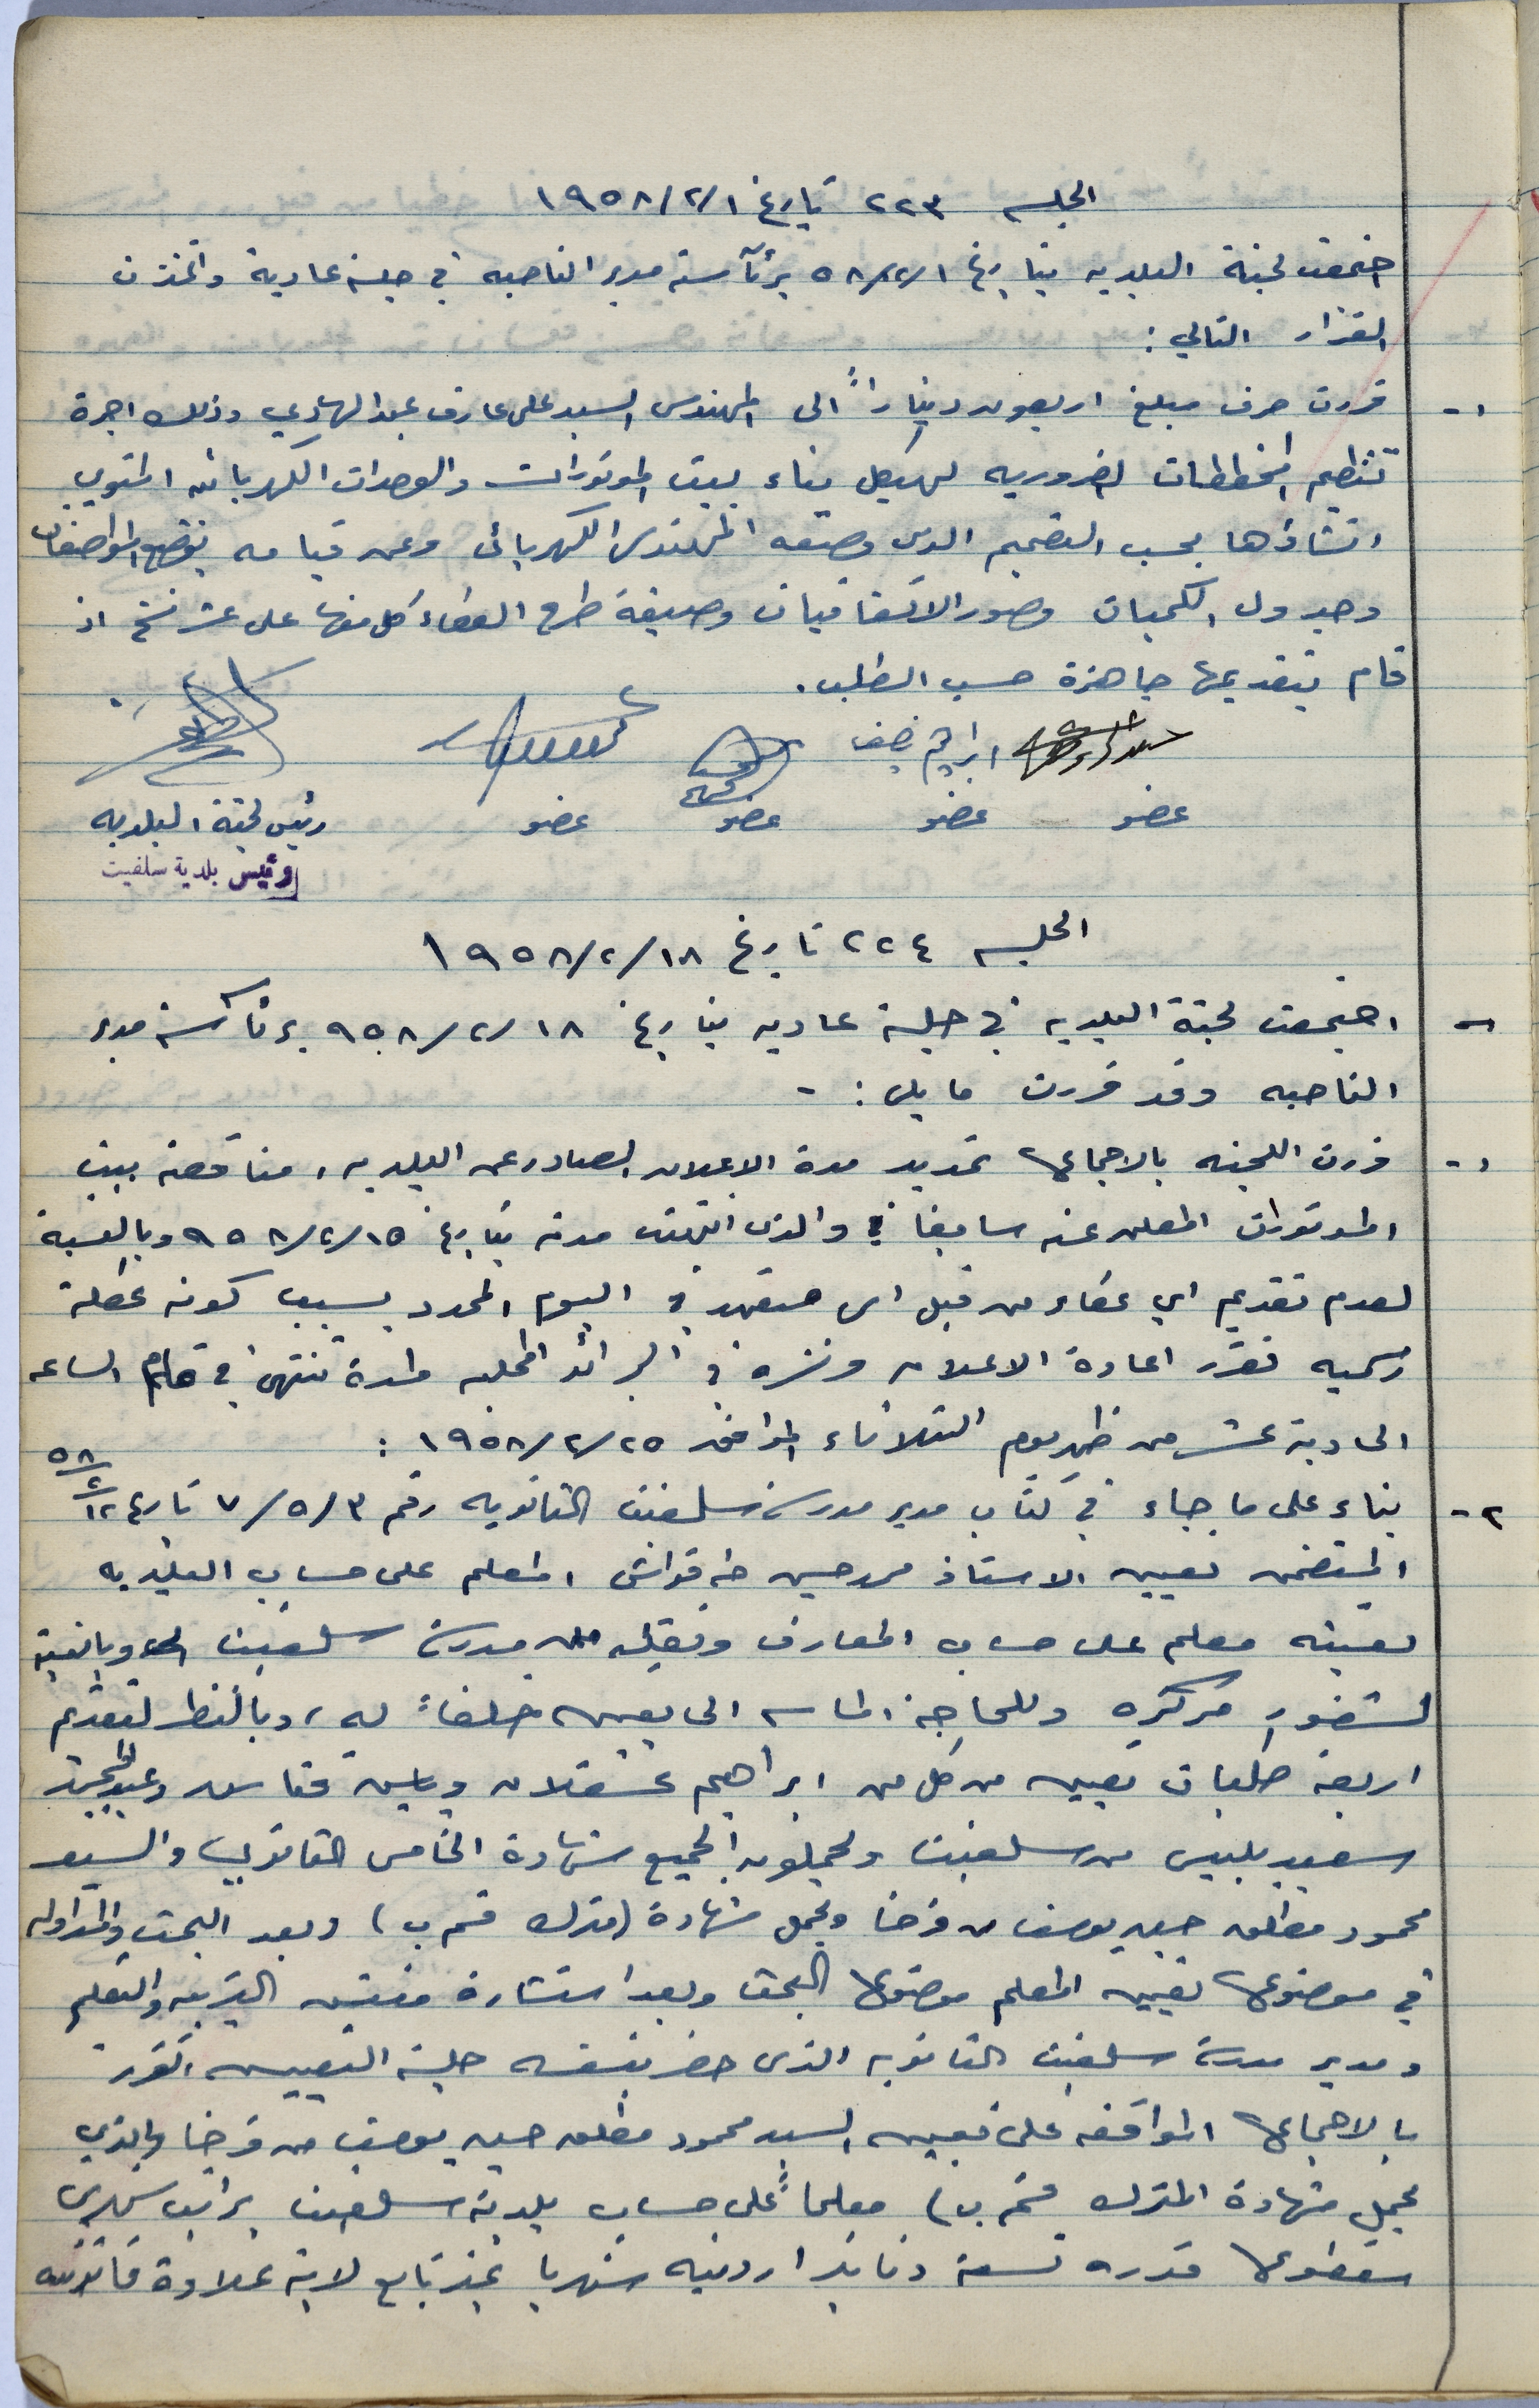 الجلسه ٢٢٣ تاريخ ١٩٥٨/٢/١
اجتمعت لجنة البلديه بتاريخ ٥٨/٢/١ برئآسة مدير الناحيه في جلسة عادية واتخذت
القرار التالي :
١- قررت صرف مبلغ اربعون ديناراً الى المهندس السيد على عارف عبد الهادي وذلك اجرة
تنظيم المخططات الضروريه لهيكل بناء بيت الموتورات والوحدات الكهربائيه المنوي
انشاؤها بحسب التصميم الذى وضعه المهندس الكهربائى وعن قيامه بوضع المواصفات
وجدول الكميات وصور الاتفاقيات وصيغة طرح العطاء كل منها على عشر نسخ اذ
قام بتقديمها جاهزة حسب الطلب .
ابراهيم
عضو عضو عضو عضو رئيس لجنة البلديه
رئيس بلدية سلفيت
الجلسه ٢٢٤ تاريخ ١٩٥٨/٢/١٨
اجتمعت لجنة البلديه في جلسة عاديه بتاريخ ٩٥٨/٢/١٨ برئآسة مدير
الناحيه وقد قررت ما يلى : -
١- قررت اللجنه بالاجماع تمديد مدة الاعلان الصادر عن البلديه ، مناقصة بيت
الموتورات المعلن عنه سابقا والذى انتهت مدته بتاريخ ٩٥٨/٢/١٥ وبالنسبة
لعدم تقديم اي عطاء من قبل اى متعهد في اليوم المحدد بسبب كونه عطلة
رسميه تقرر اعادة الاعلان ونشره في الجرائد المحليه ولمدة تنتهى في تمام الساعه
الحادية عشر من ظهر يوم الثلاثاء الموافق ١٩٥٨/٢/٢٥ :
٢- بناء على ما جاء في كتاب مدير مدرسة سلفيت الثانويه رقم ٧/٥/٣ تاريخ ٥٨/٢/١٢
المتضمن تعيين الاستاذ حسين طه المعلم على حساب البلديه
تعينه معلم على حساب المعارف ونقله من مدرسة سلفيت وبالنسبة
لشغور مركزه وللحاجة الماسه الى تعيين خلفاً له ، وبالنظر لتقديم
اربعة طلبات تعيين من كل من ابراهيم عسقلان وياسين وعبد المجيد
سعيد بلبيس من سلفيت ويحملون الجميع شهادة الخامس الثانوي والسيد
محمود مطلق حسين يوسف من فرخا ويحمل شهادة (مترك قسم ب) وبعد البحث والمداوله
في موضوع تعيين المعلم موضوع البحث وبعد استشارة مفتش التربيه والتعليم
ومدير مدرسة سلفيت الثانويه الذى حضر بنفسه جلسة التعيين تقرر
بالاجماع الموافقه على تعيين السيد محمود مطلق حسين يوسف من فرخا والذي
يحمل شهادة المترك قسم ب) معلماً على حساب بلدية سلفيت براتب شهري
مقطوع قدره تسعة دنانير اردنيه شهريا غير تابع لاية علاوة قانونيه